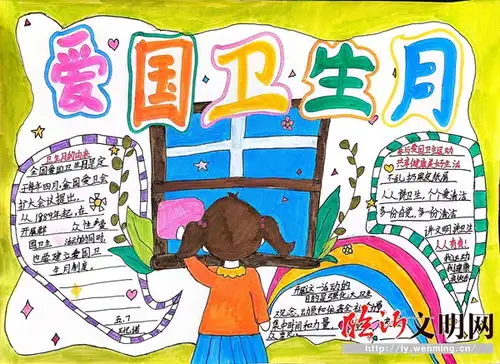 爱国卫生月
卫生月的由来
全国爱国卫生月是定
于每年四月,全国爱卫会
扩大会议提出,
从1989年起,在
开展群众性
国卫生活动的同时
也要建立爱国卫
生月制度。
五.7
参与爱国卫生运动
共享健康美好生活
不乱扔果皮纸屑
人人讲卫生,个个爱清洁
多份自觉,多份清洁
讲文明讲卫生
人人有责!
我运动
我健康
我快乐
开展这一活动的
目的是强化大卫生
观念,动员和依靠全社会力量
集中时间和力量,
临沂文明网
http://ly.wenming.cn/